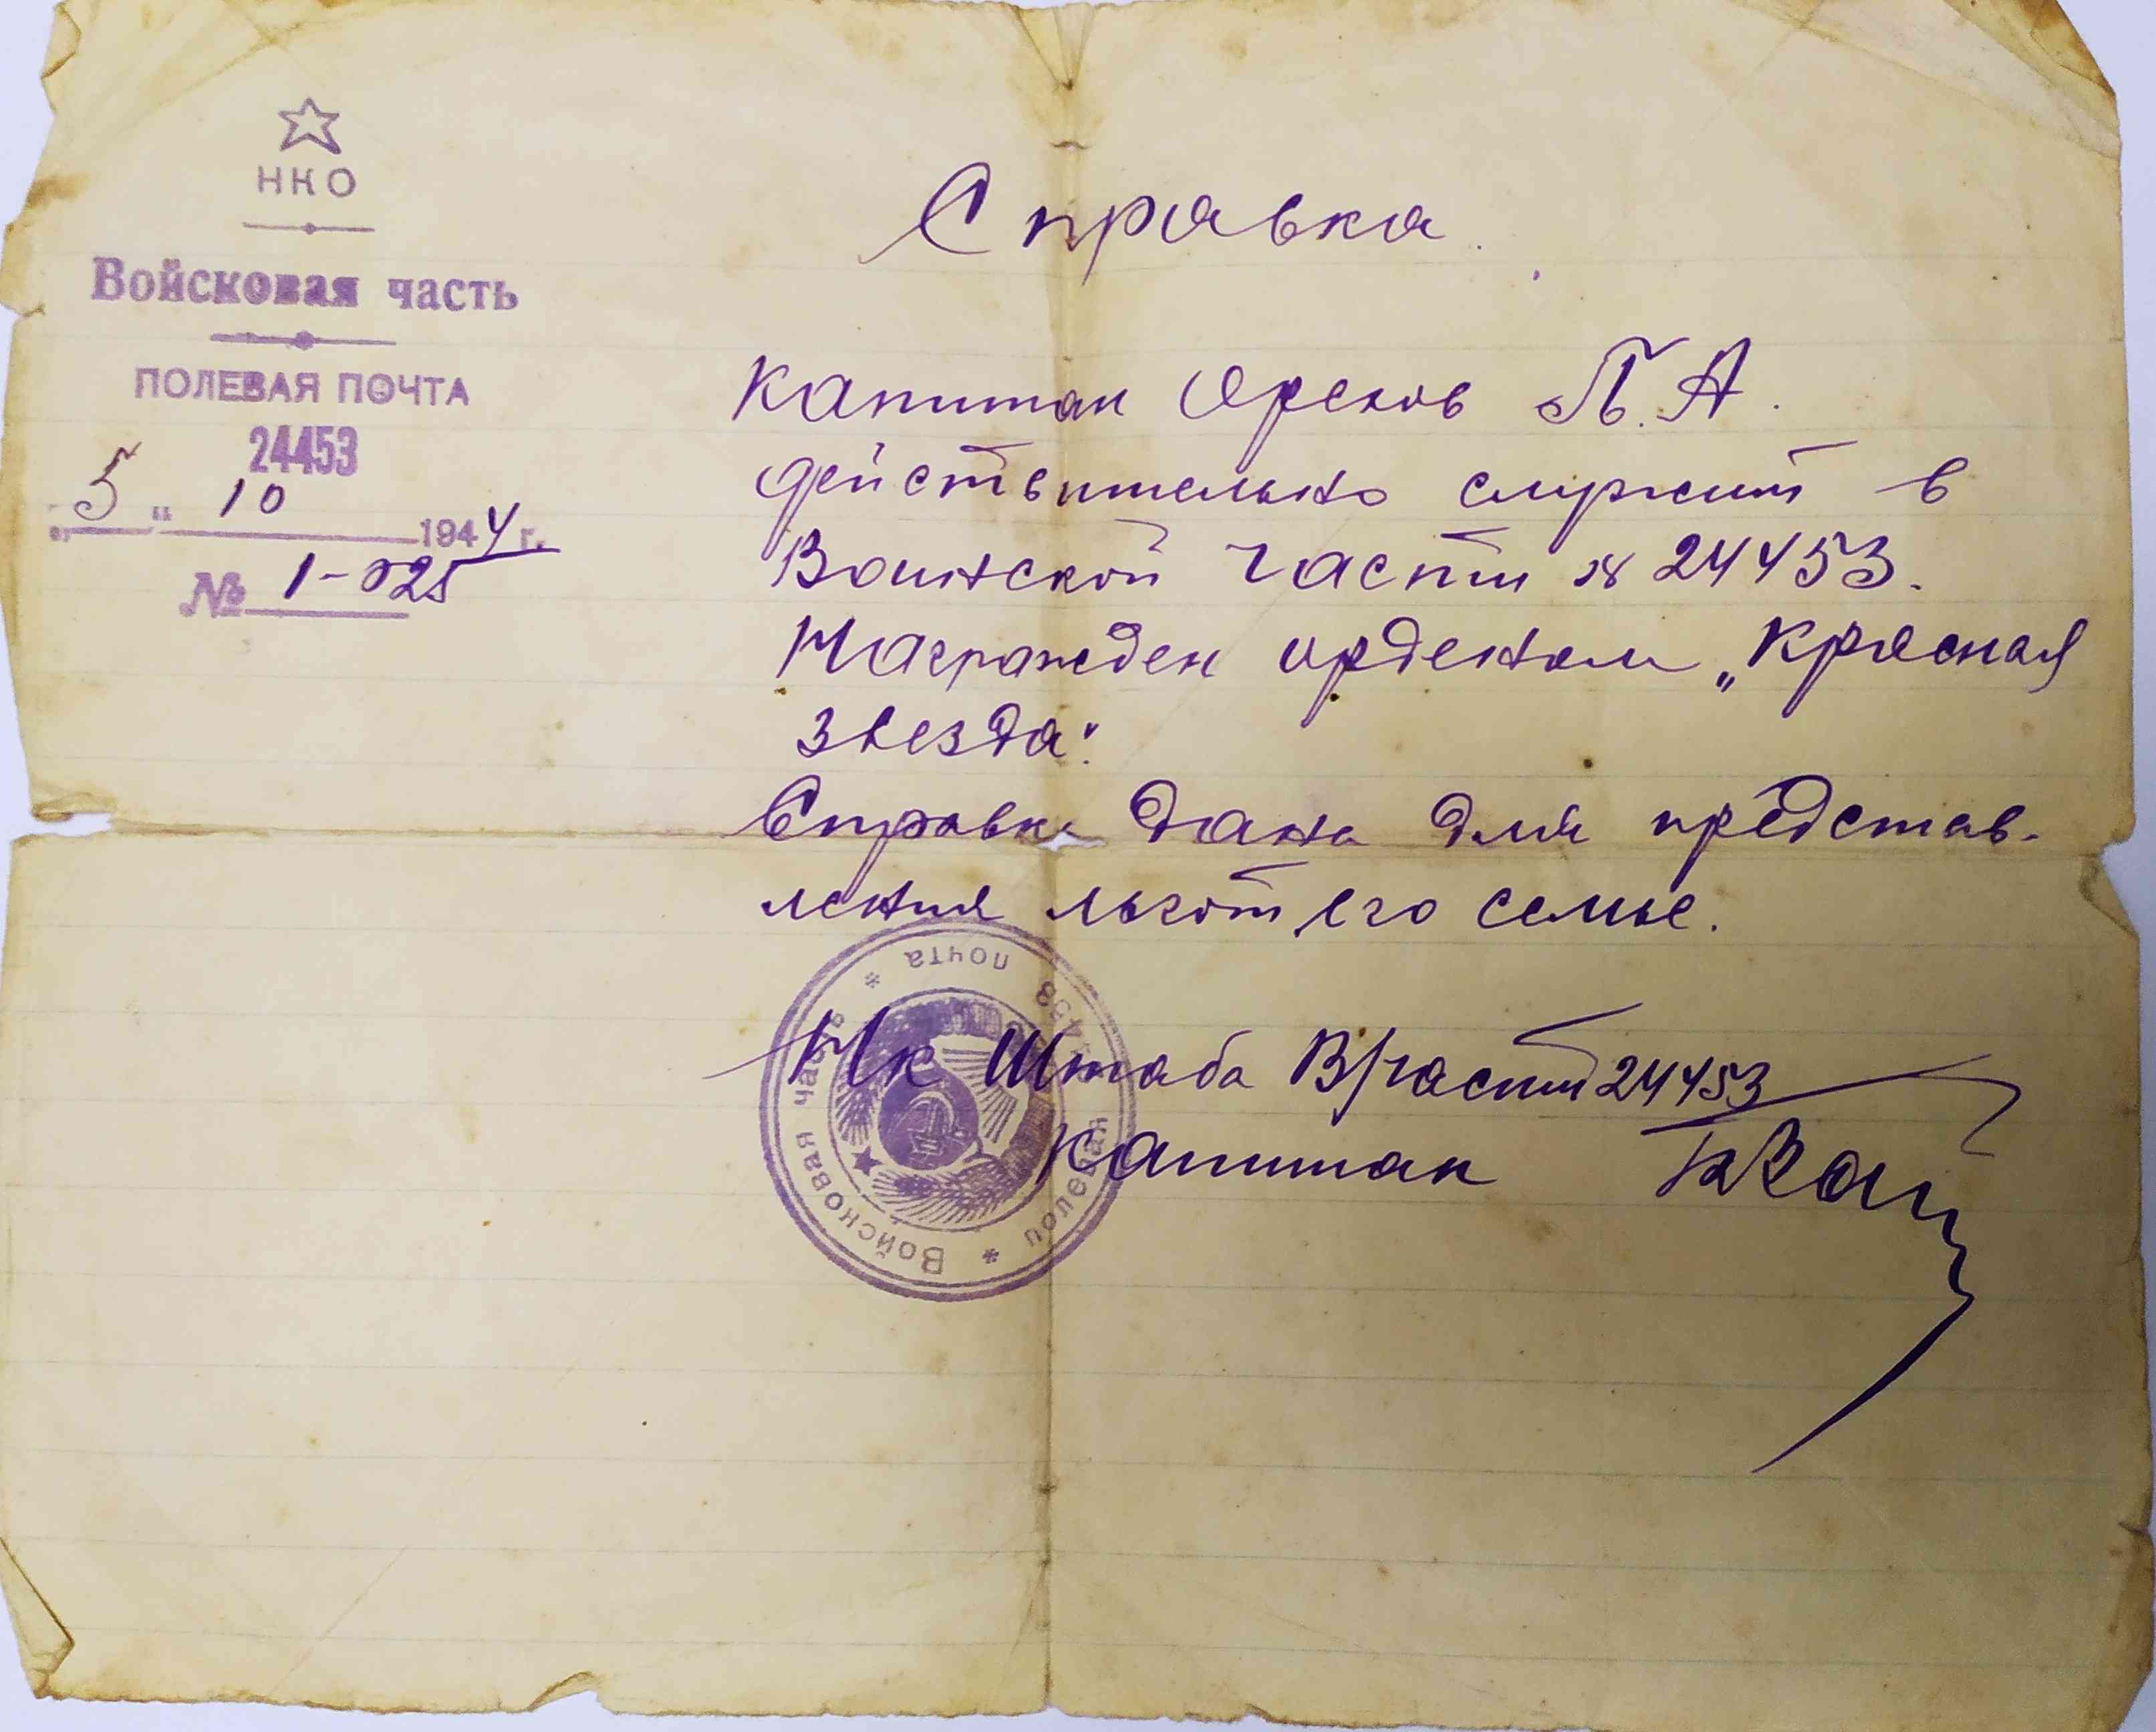 НКО
Войсковая часть
ПОЛЕВАЯ ПОЧТА
24453
"5" 10 1944 г.
№ 1-025
Справка
Капитан Орехов П.А.
действительно служит в
Воинской части № 24453.
Награжден орденом „Красная
звезда".
Справка дана для представ-
ления льгот его семье.
Нк Штаба В/части 24453
Капитан
Войсковая часть * почта * полевая